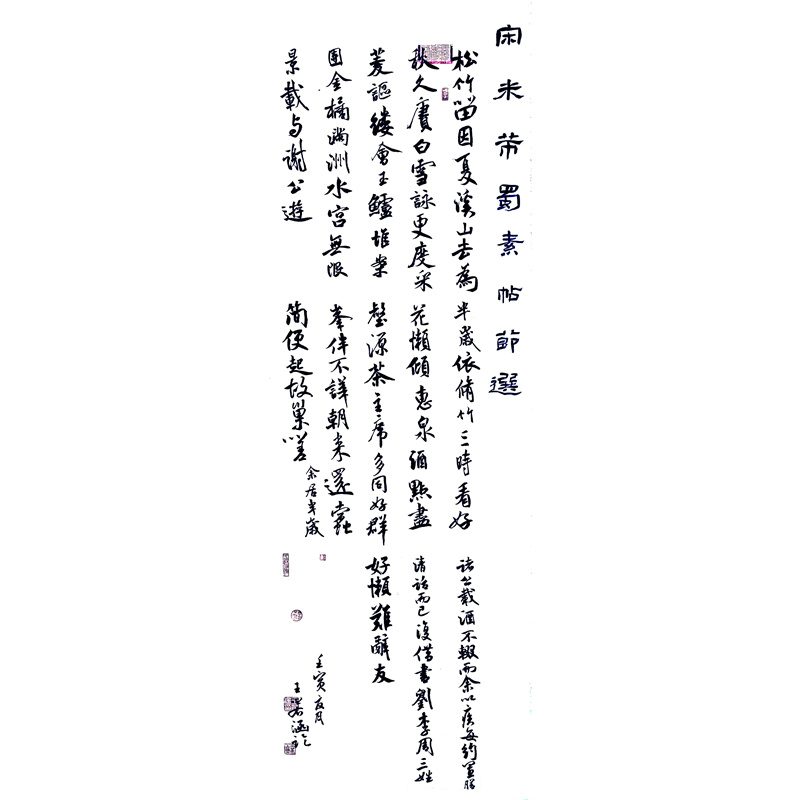 宋米芾蜀素帖節選
松竹留因夏溪山去為
秋久賡白雪詠更度采
菱謳縷會玉鱸堆案
團金橘滿洲水宮無限
景載与謝公遊
半歲依脩竹三時看好
花懶傾惠泉酒點盡
壑源茶主席多同好群
峯伴不譁朝来還蠹
簡便起故巢嗟
余居半歲
諸公載酒不輟而余以疾每約置膳
清話而已復借書劉李周三姓
好懶難辭友
壬寅夏月
王若涵